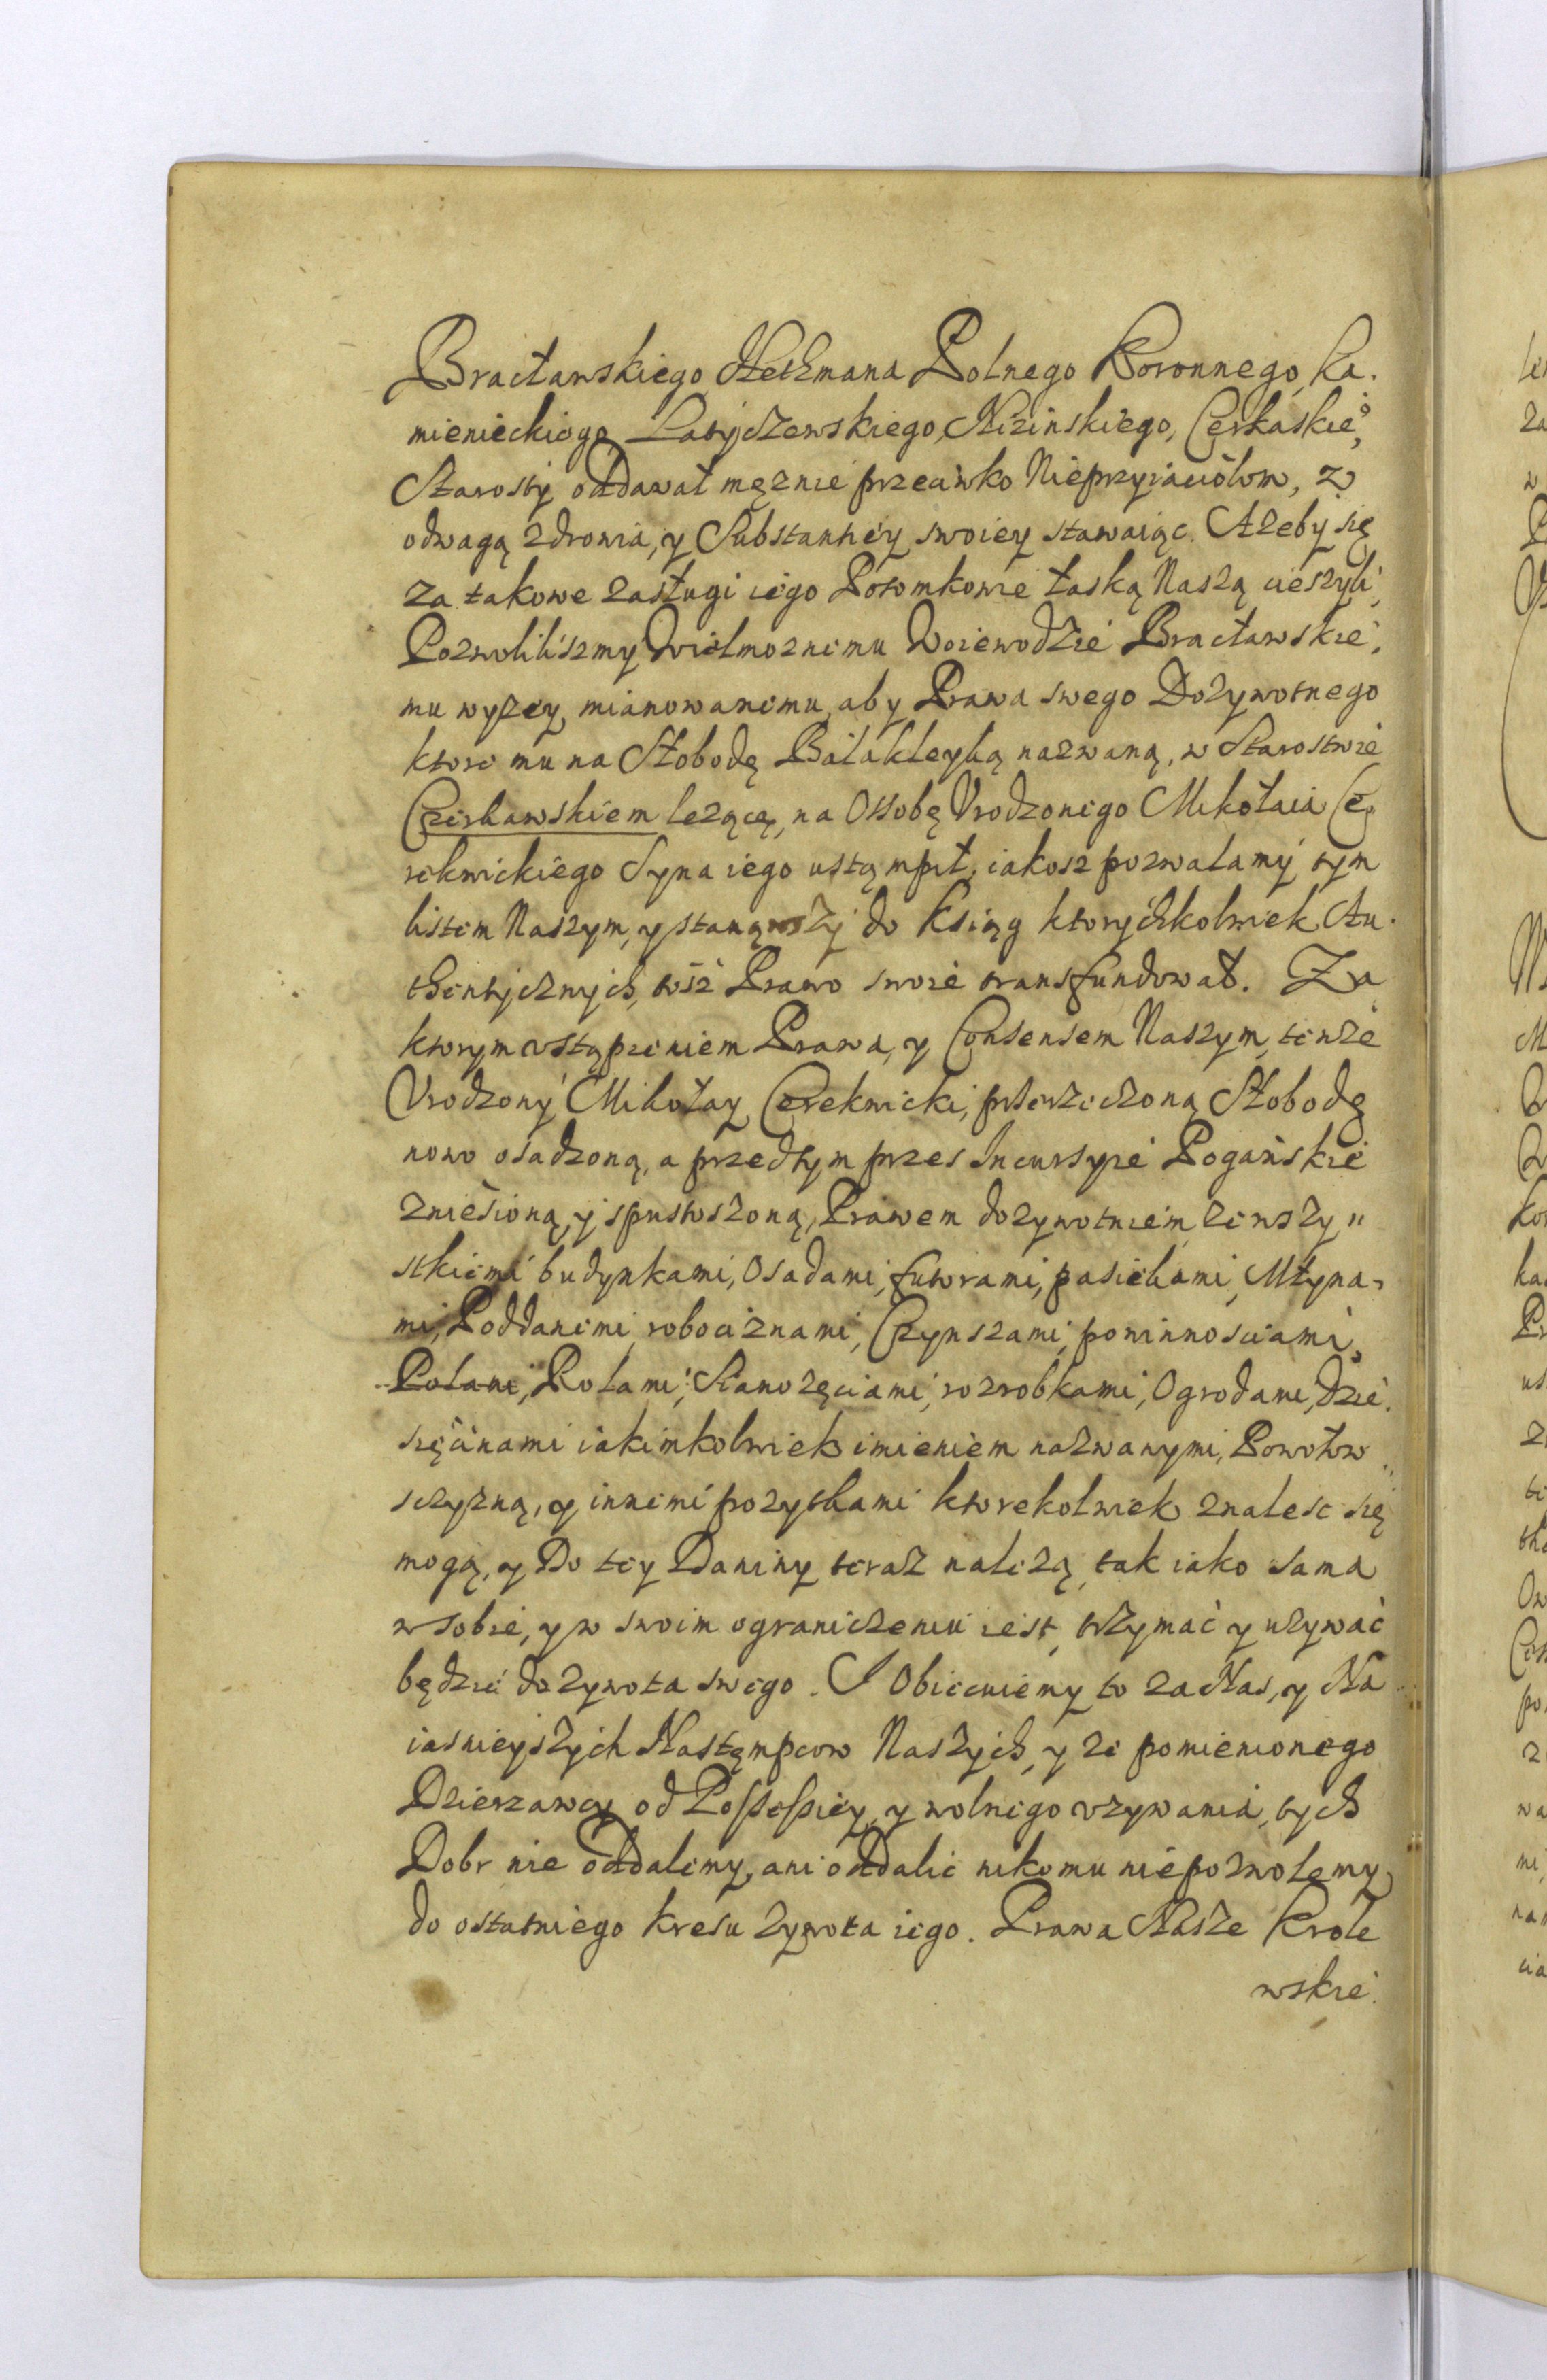 Bracławskiego, Hethmana Polnego Koronnego, Ka.
mienieckiego Latyczewskiego, Niżinskiego, Cerkaskie°
Starosty oddawał męznie przeciwko Nieprzyiaciołom, z
odwagą zdrowia, y Substantiey swoiey stawaiąc. Ażeby się
za takowe zasługi iego Potomkowie łaską Naszą cieszyli,
Pozwoliliszmy Wielmoznemu Woiewodzie Bracławskie,
mu wyzey mianowanemu, aby Prawa swego Dozywotnego
ktore mu na Słobodę Bałakleyką nazwaną, w Starostwie
Czerkawskiem lezącę, na Ossobę Urodzonego Mikołaia Ce
rekwickiego Syna iego ustąmpił, iakosz pozwalamy tym
listem Naszym, y stanąwszy do Ksiąg ktorychkolwiek Au.
thentycznych, tosz Prawo swoie transfundował. Za
ktorym vstąpieniem Prawa, y Consensem Naszym, tenze
Vrodzony Mikołay Cerekwicki, przerzeczoną Słobodę
nowo osadzoną, a przedtym przes Incursyie Pogańskie
znieśioną, y spustoszoną, Prawem dozywotniem, ze wszy"
stkiemi budynkami, Osadami, futorami, pasiekami, Młyna,
mi, Poddanemi, robociznami, Czynszami, powinnosciami,
Polami, Rolami, Sianozęciami, rozrobkami, Ogrodami, Dzie.
sięćinami iakimkolwiek imieniem nazwanymi, Powołow
sczyzną, y innemi pozytkami ktorekolwiek znalesc się
mogą, y Do tey Daniny teraz nalezą, tak iako sama
w sobie, y w swoim ograniczeniu iest, trzymać y uzywać
będzie do zywota swego. I Obiecuiemy to za Nas, y Na
iasnieyszych Nastęmpcow Naszych, y ze pomienionego
Dzierzawcy od Possessiey, y wolnego vzywania, tych
Dobr nie oddalemy, ani oddalic nikomu niepozwolemy
do ostatniego kresu zywota iego. Prawa Nasze Krole
wskie.